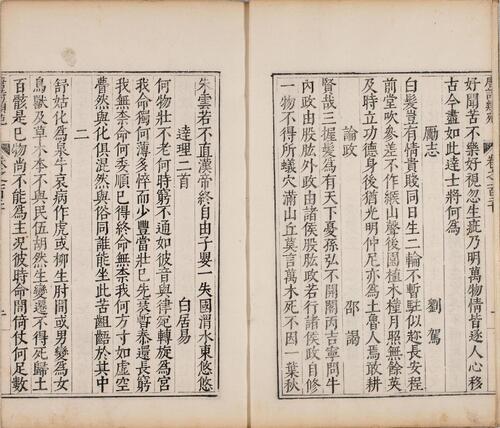 好聞苦不樂好視忽生疵乃明萬物情皆逐人心移
古今盡如此達士將何為
勵志 劉駕
白髮豈有情貴賤同日生二輪不暫駐似長安程
前堂吹參差不作緱山聲後園植木槿月照無餘英
及時立功德身後猶光明仲尼亦為土魯人焉敢耕
論政 邵謁
賢哉三握髮為有天下憂孫弘不開閤丙吉寧問牛
內政由股肱外政由諸侯股肱政若行諸侯政自修
一物不得所蟻穴滿山丘莫言萬木死不因一葉秋
朱雲若不直漢帝終自由子嬰一失國渭水東悠悠
達理二首 白居易
何物壯不老何時窮不通如彼音與律宛轉旋為宮
我命獨何薄多悴而少豐當壯已先衰暫泰還長窮
我無柰命何委順已得終命無柰我何方寸如虛空
懵然與化俱混然與俗同誰能坐此苦齟齬於其中
二
舒姑化為泉牛哀病作虎或柳生肘間或男變為女
鳥獸及草木本不與民伍胡然生變遷不得死歸土
百骸是已物尚不能為主況彼時命間倚仗何足數